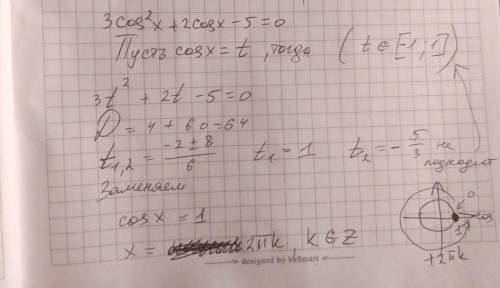 3cos²x + 2cosx - 5 = 0
Пусть cosx = t, тогда (t ∈ [-1; 1])
3t² + 2t - 5 = 0
D = 4 + 60 = 64
t₁,₂ = (-2 ± 8)/6 t₁ = 1 t₂ = -5/3 не подходит
Заменяем
cosx = 1
x = 2πk, k ∈ Z
0
cos
1
+2πk
designed by bellsmart